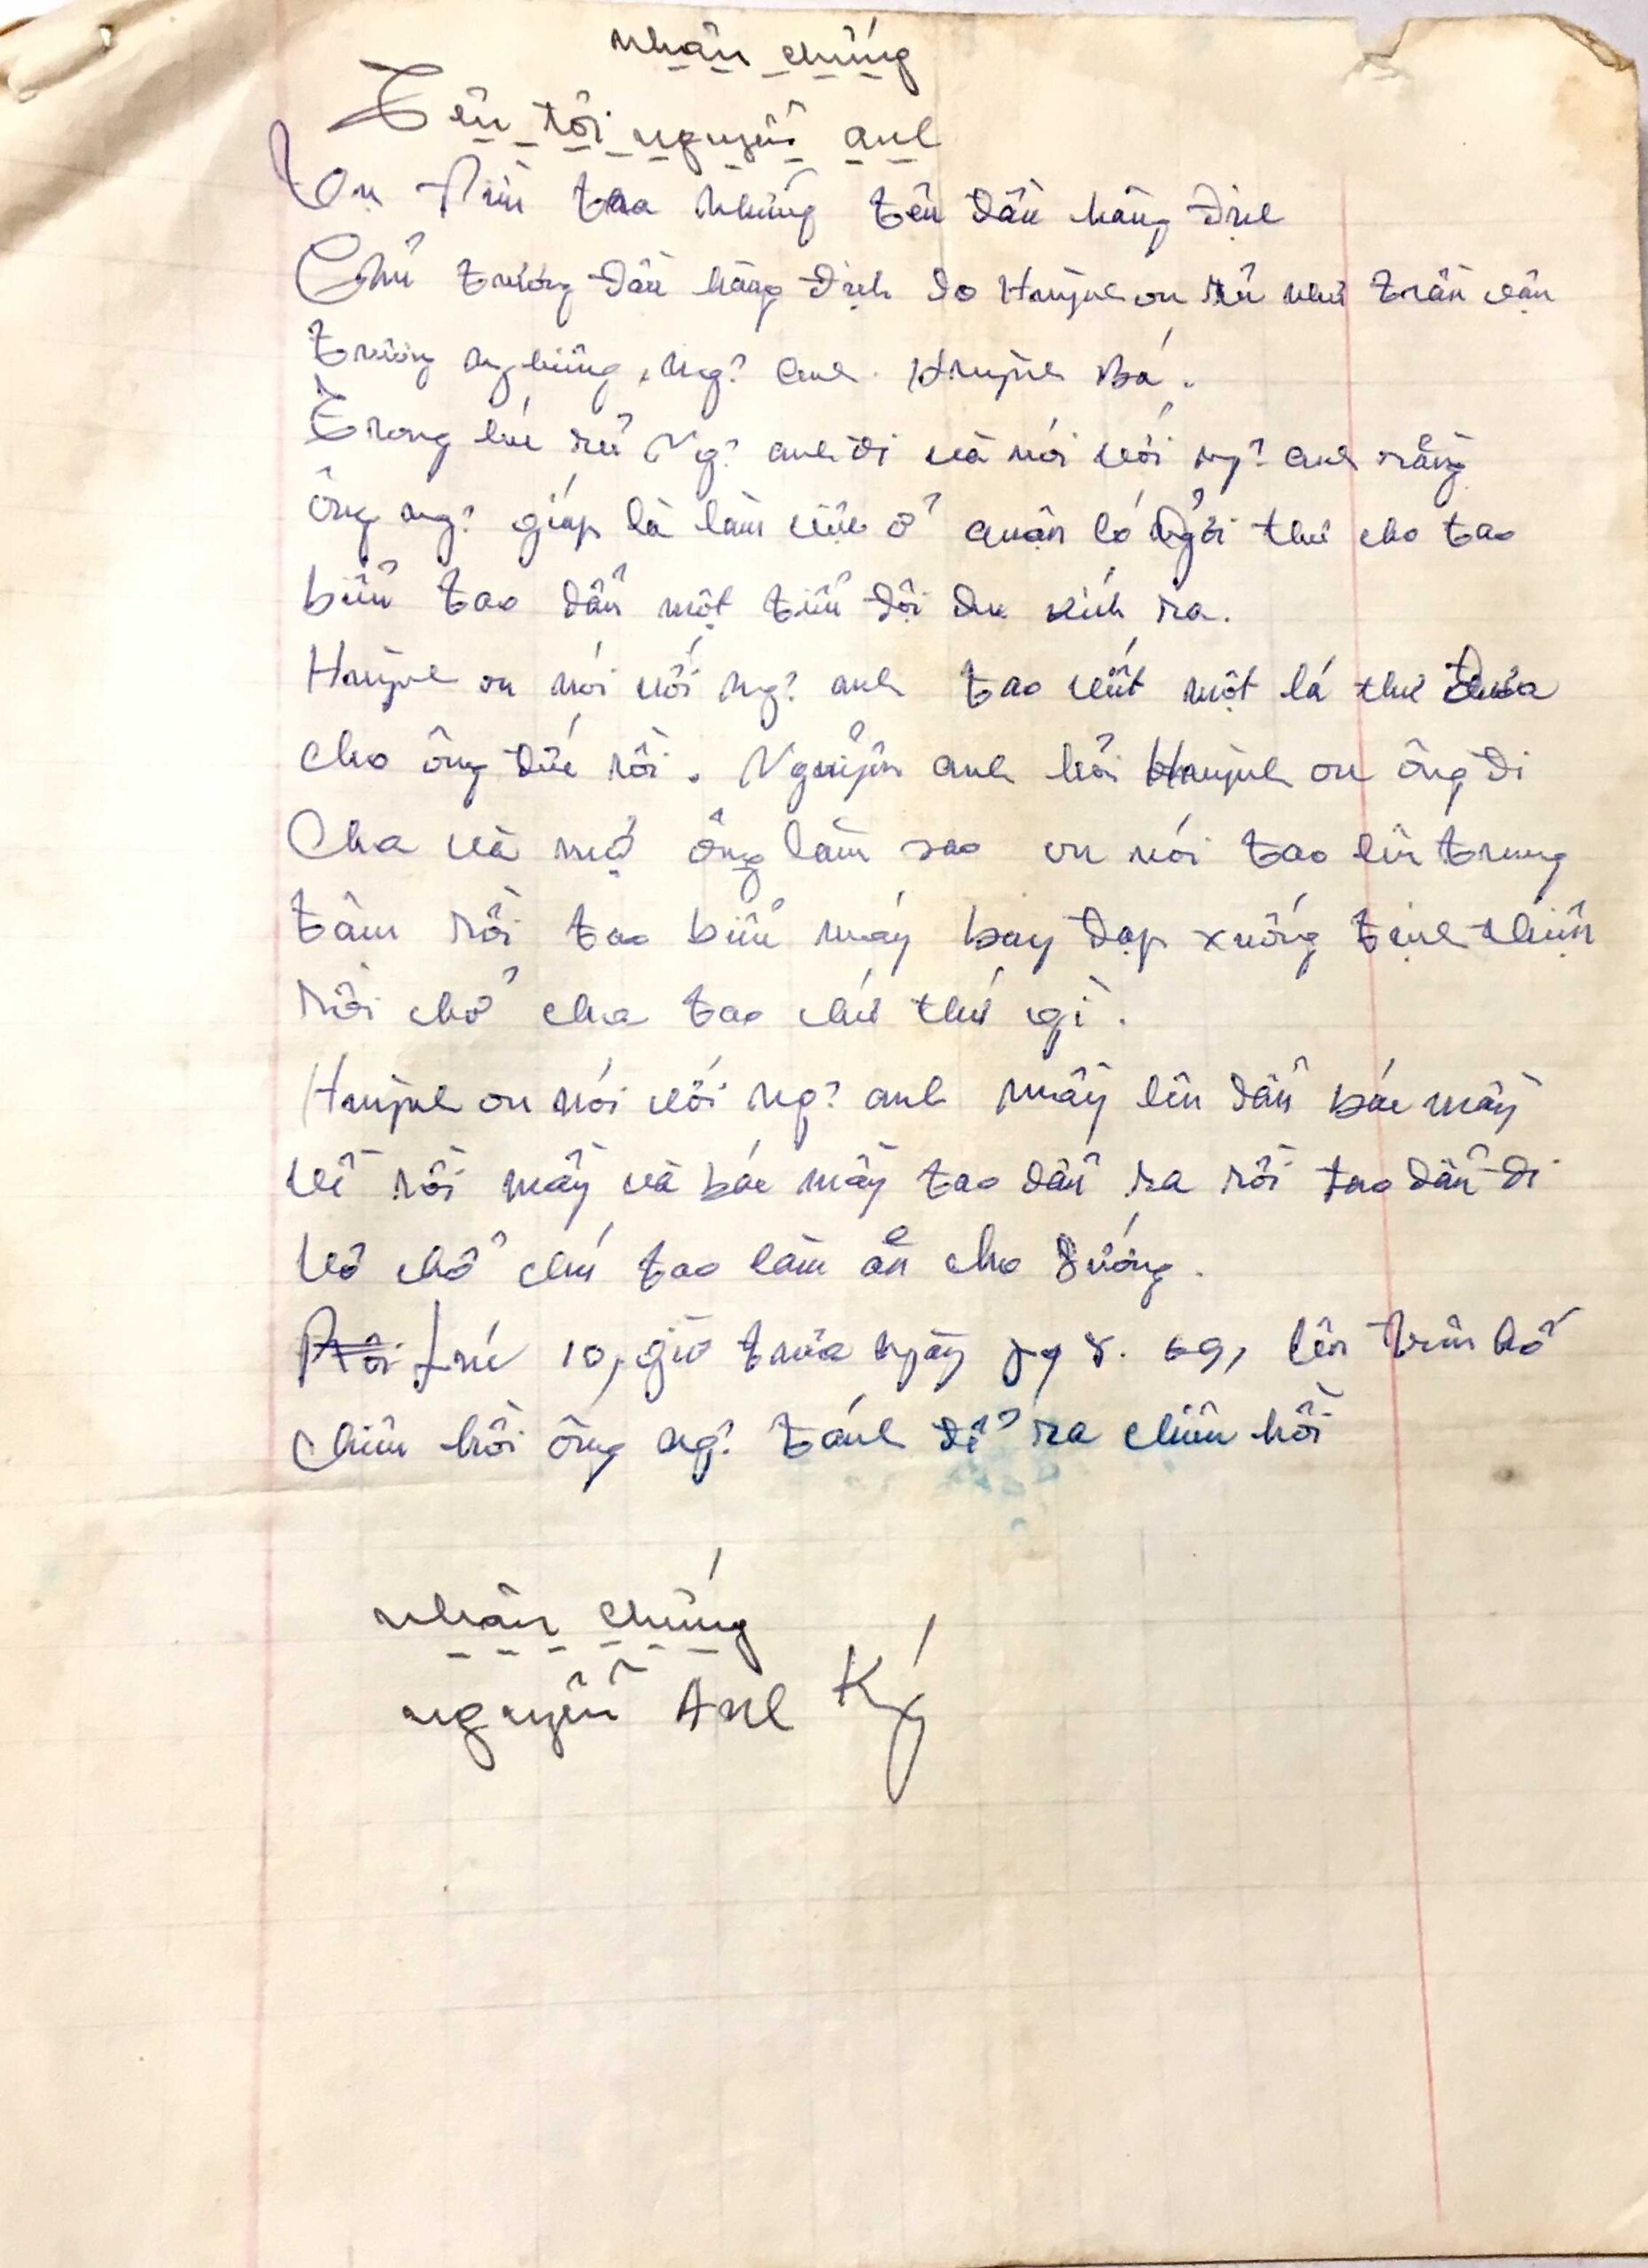 nhân chứng
Tên tôi nguyễn anh
Vụ điều tra những tên đầu hàng địch
Chủ trương đầu hàng địch do Huỳnh on rủ như trần văn
trường, ng? anh. Huỳnh Bá.
Trong lúc rủ Ng? anh đi và nói với ng? anh rằng
ông ng? giáp là làm việc ở quận có gởi thư cho tao
biểu tao dẫn một tiểu đội du kích ra.
Huỳnh on nói với ng? anh tao viết một lá thư đưa
cho ông đức rồi. Nguyễn anh hỏi Huỳnh on ông đi
Cha và mợ ông làm sao on nói tao lên trung
tâm rồi tao biểu máy bay đạp xuống tịnh thiện
rồi chở cha tao chứ thứ gì.
Huỳnh on nói với ng? anh mầy lên dẫn bác mầy
về rồi mầy và bác mầy tao dẫn ra rồi tao dẫn đi
vô chổ chú tao làm ăn cho sướng.
Rồi Lúc 10, giờ trưa ngày 69, lên
chiêu hồi ông ng? tánh để ra chiêu hồi
nhân chứng
nguyễn Anh Ký